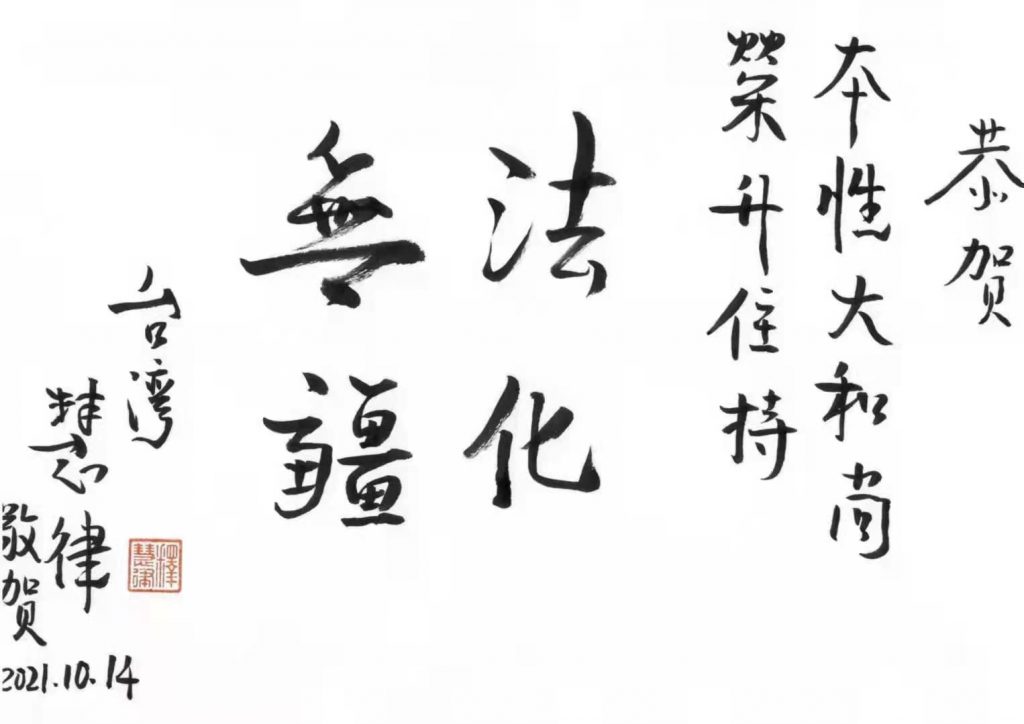 恭贺
本性大和尚
榮升住持
法化
無疆
台湾
慧律
敬贺
2021.10.14
釋慧律